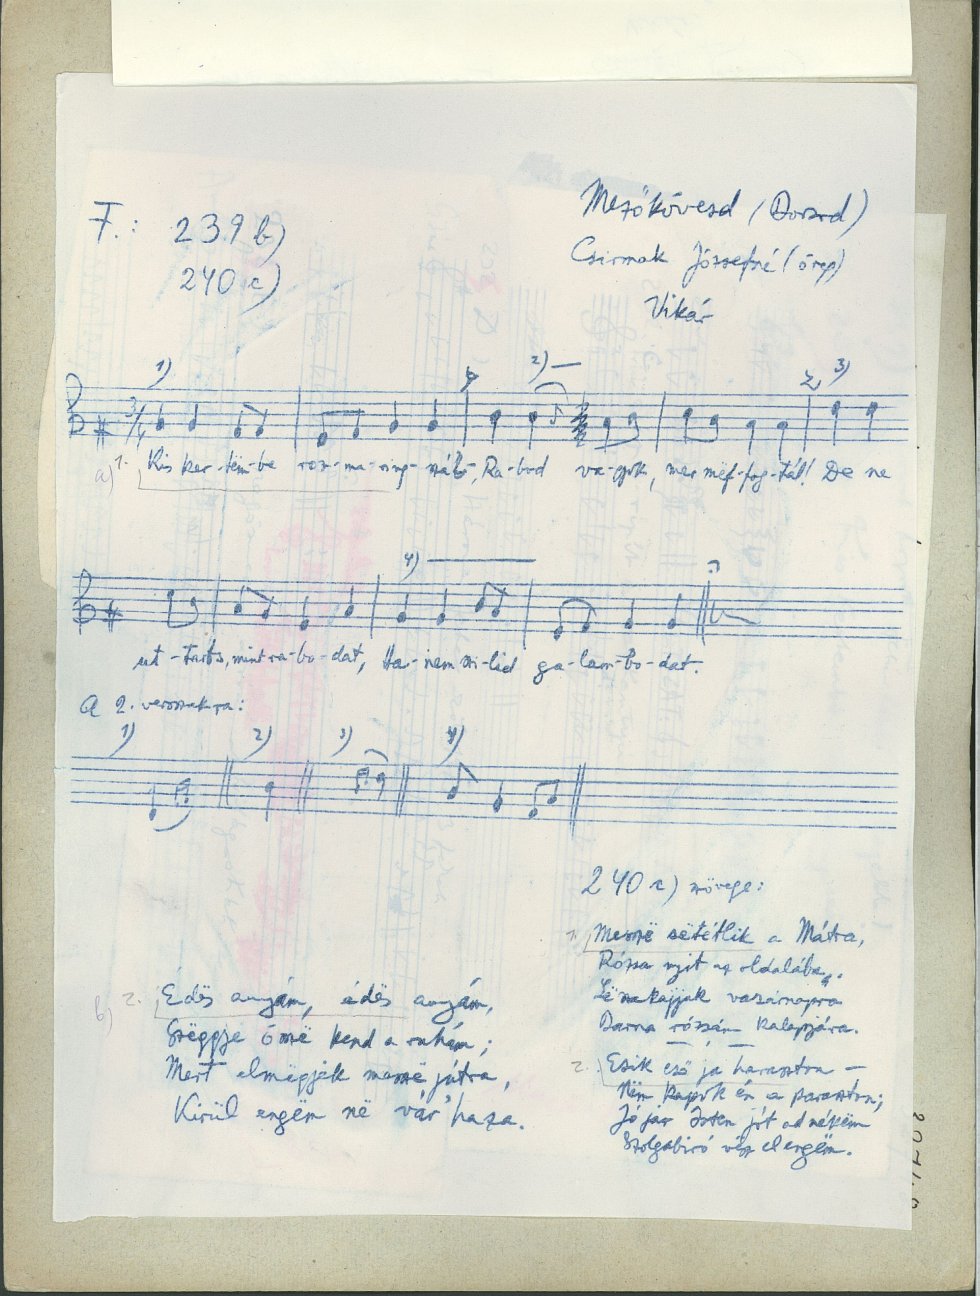 F.: 239 b)
240 c)
Mezőkövesd (Borsod)
Csirmak Józsefné (öreg)
Vikár
1) 2) 3)
a) 1. Kis ker-tëm-be roz-ma-ring-szál, Ra-bod va-gyok, mer mëf-fog-tál! De ne
4)
ut-tarts, mint ra-bo-dat, Ha-nem sze-lid ga-lam-bo-dat.
A 2. versszakra:
1) 2) 3) 4)
240 c) szövege:
1. Messzë sëtétlik a Mátra,
Rózsa nyit az oldalába.
Lë szakajják vasárnapra
Barna rózsám kalapjára.
b) 2. Édës anyám, édës anyám,
Széggye össë kend a ruhám;
Mert elmëgyëk messzë jutra,
Kirül engëm në vár haza.
2. Esik eső ja harasztra –
Nëm kapok én a parasztra;
Jó jár Isten jót ad nékëm
Szolgabiró vësz el engëm.